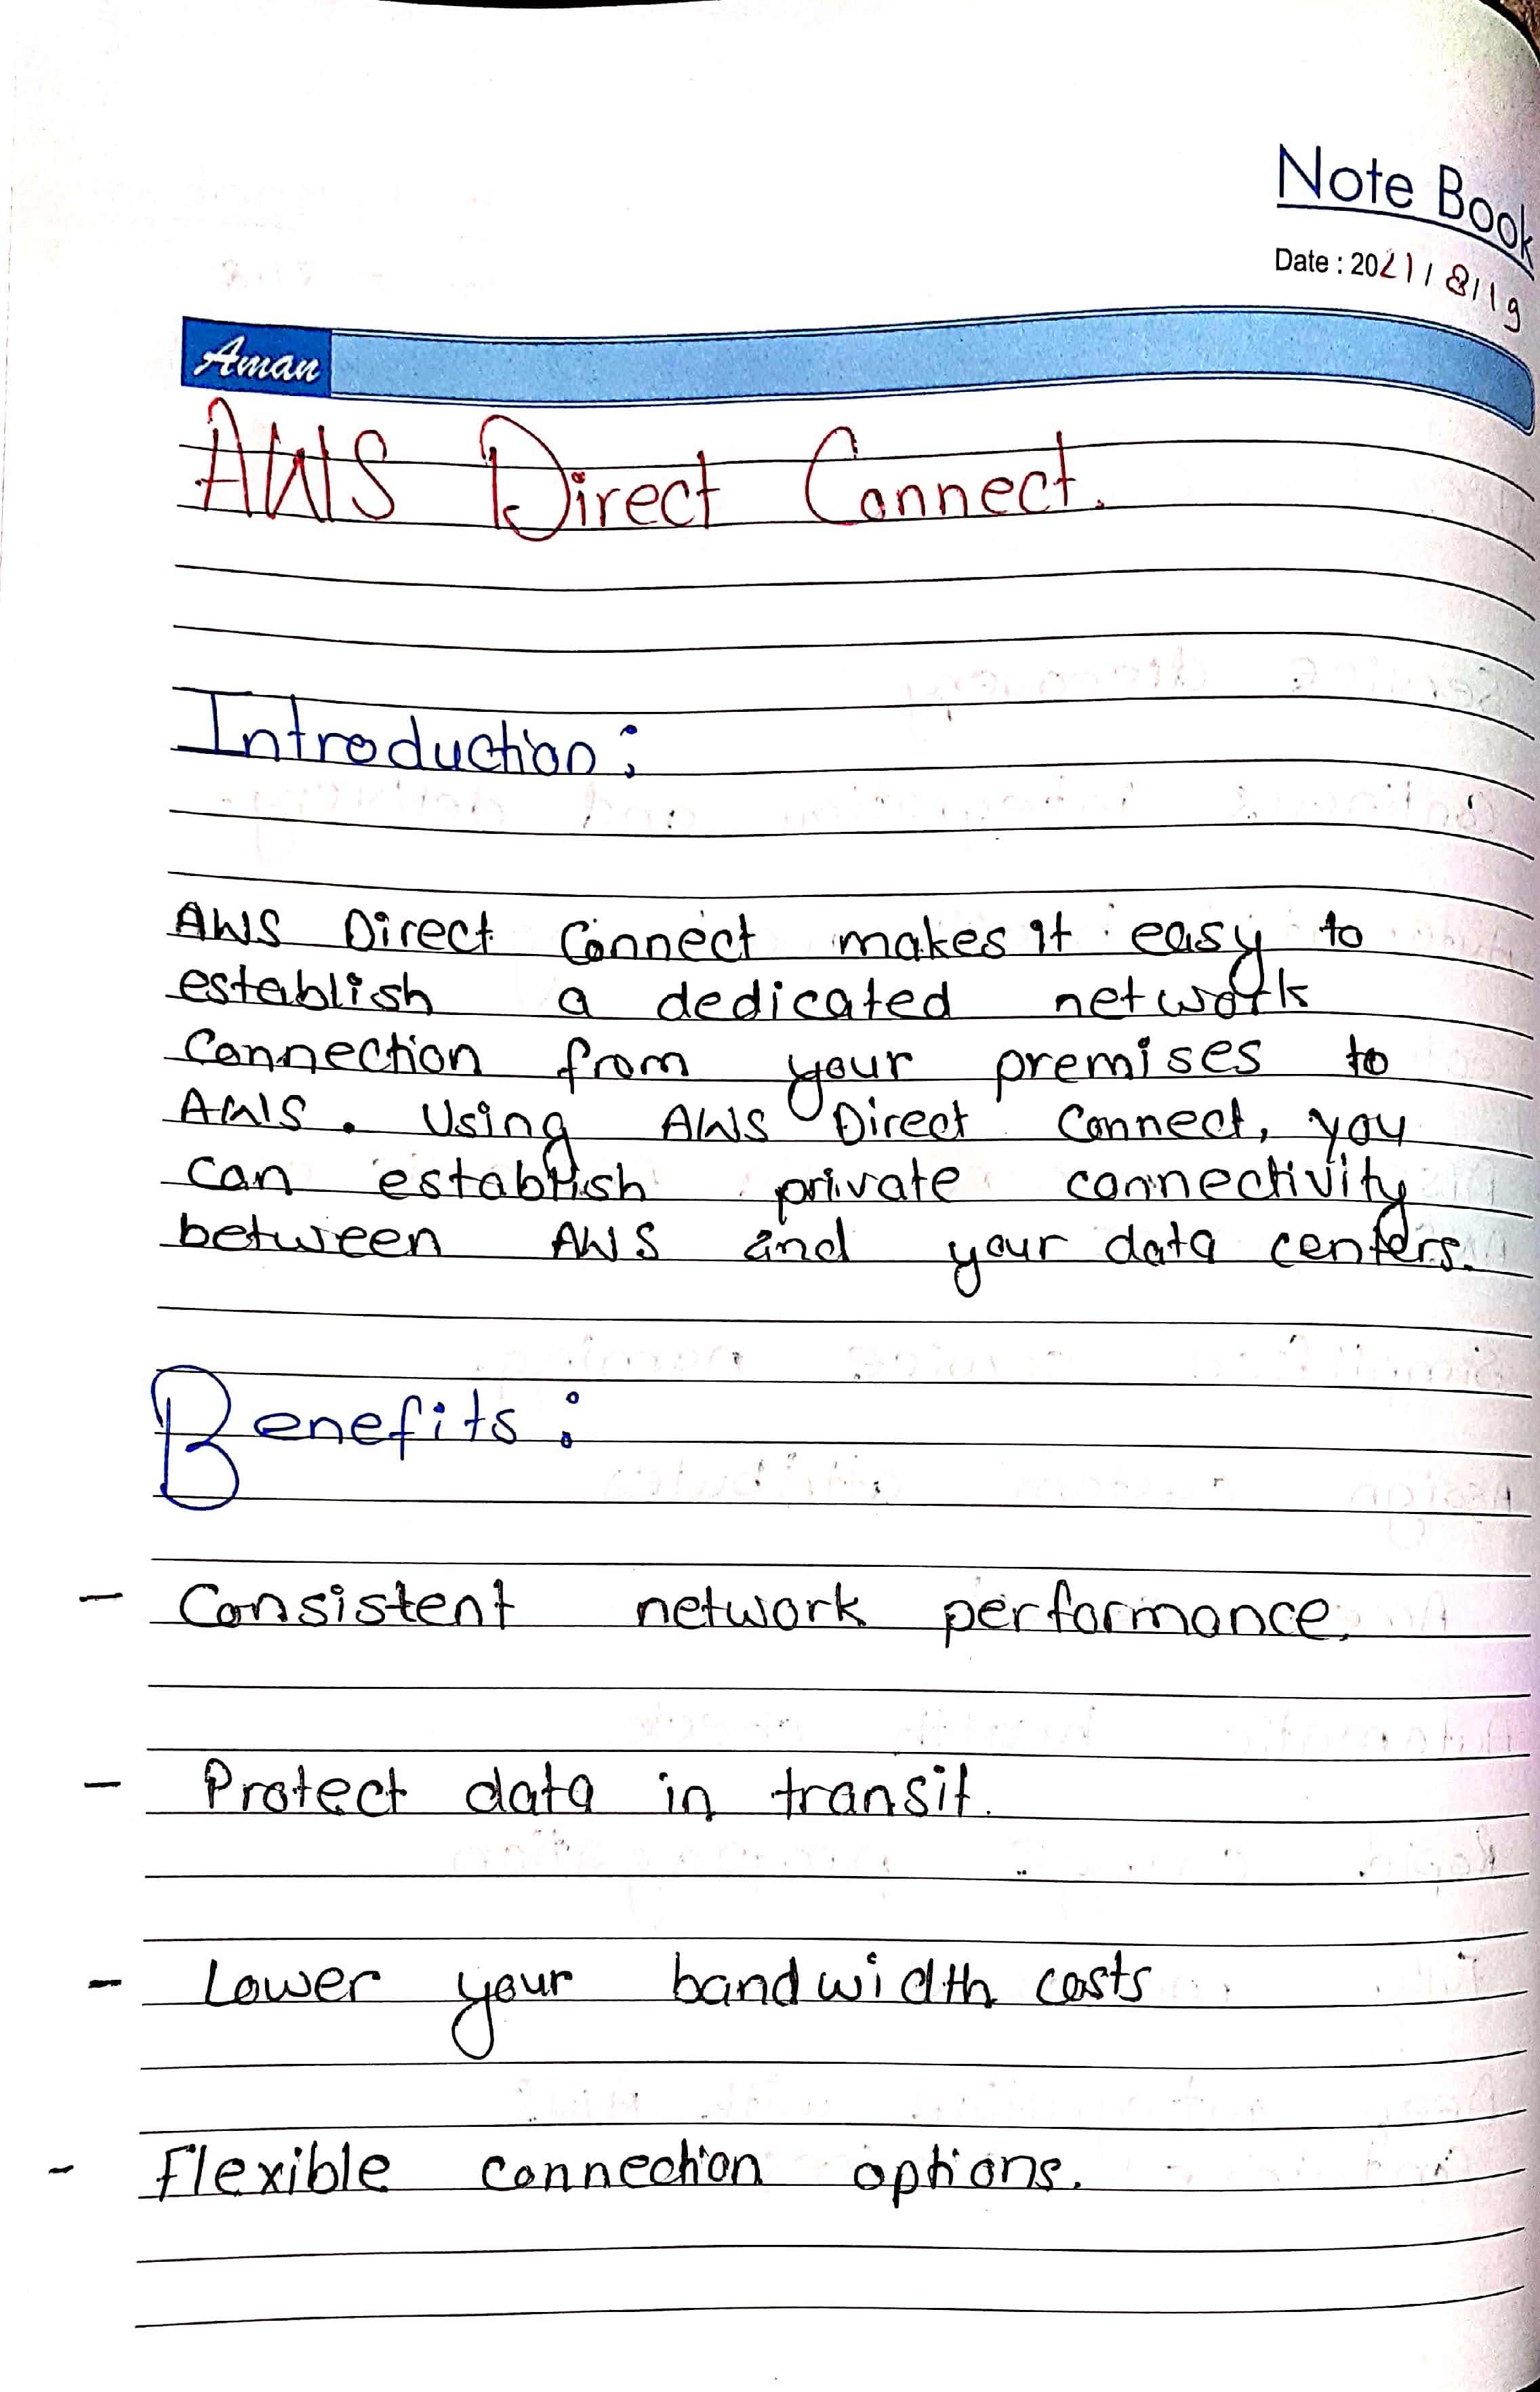 Note Book
Date : 2021/8/19
Aman
AWS Direct Connect.
Introduction:
AWS Direct Connect makes it easy to
establish a dedicated network
Connection from your premises to
AWS. Using AWS Direct Connect, you
can establish private connectivity
between AWS and your data centers.
Benefits:
- Consistent network performance.
- Protect data in transit.
- Lower your bandwidth costs
- Flexible connection options.